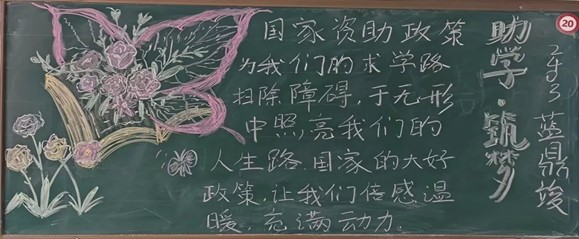 国家资助政策
为我们的求学路
扫除障碍，于无形
中照亮我们的
人生路.国家的大好
政策，让我们倍感温
暖，充满动力。
助学·筑梦
蓝鼎竣
20